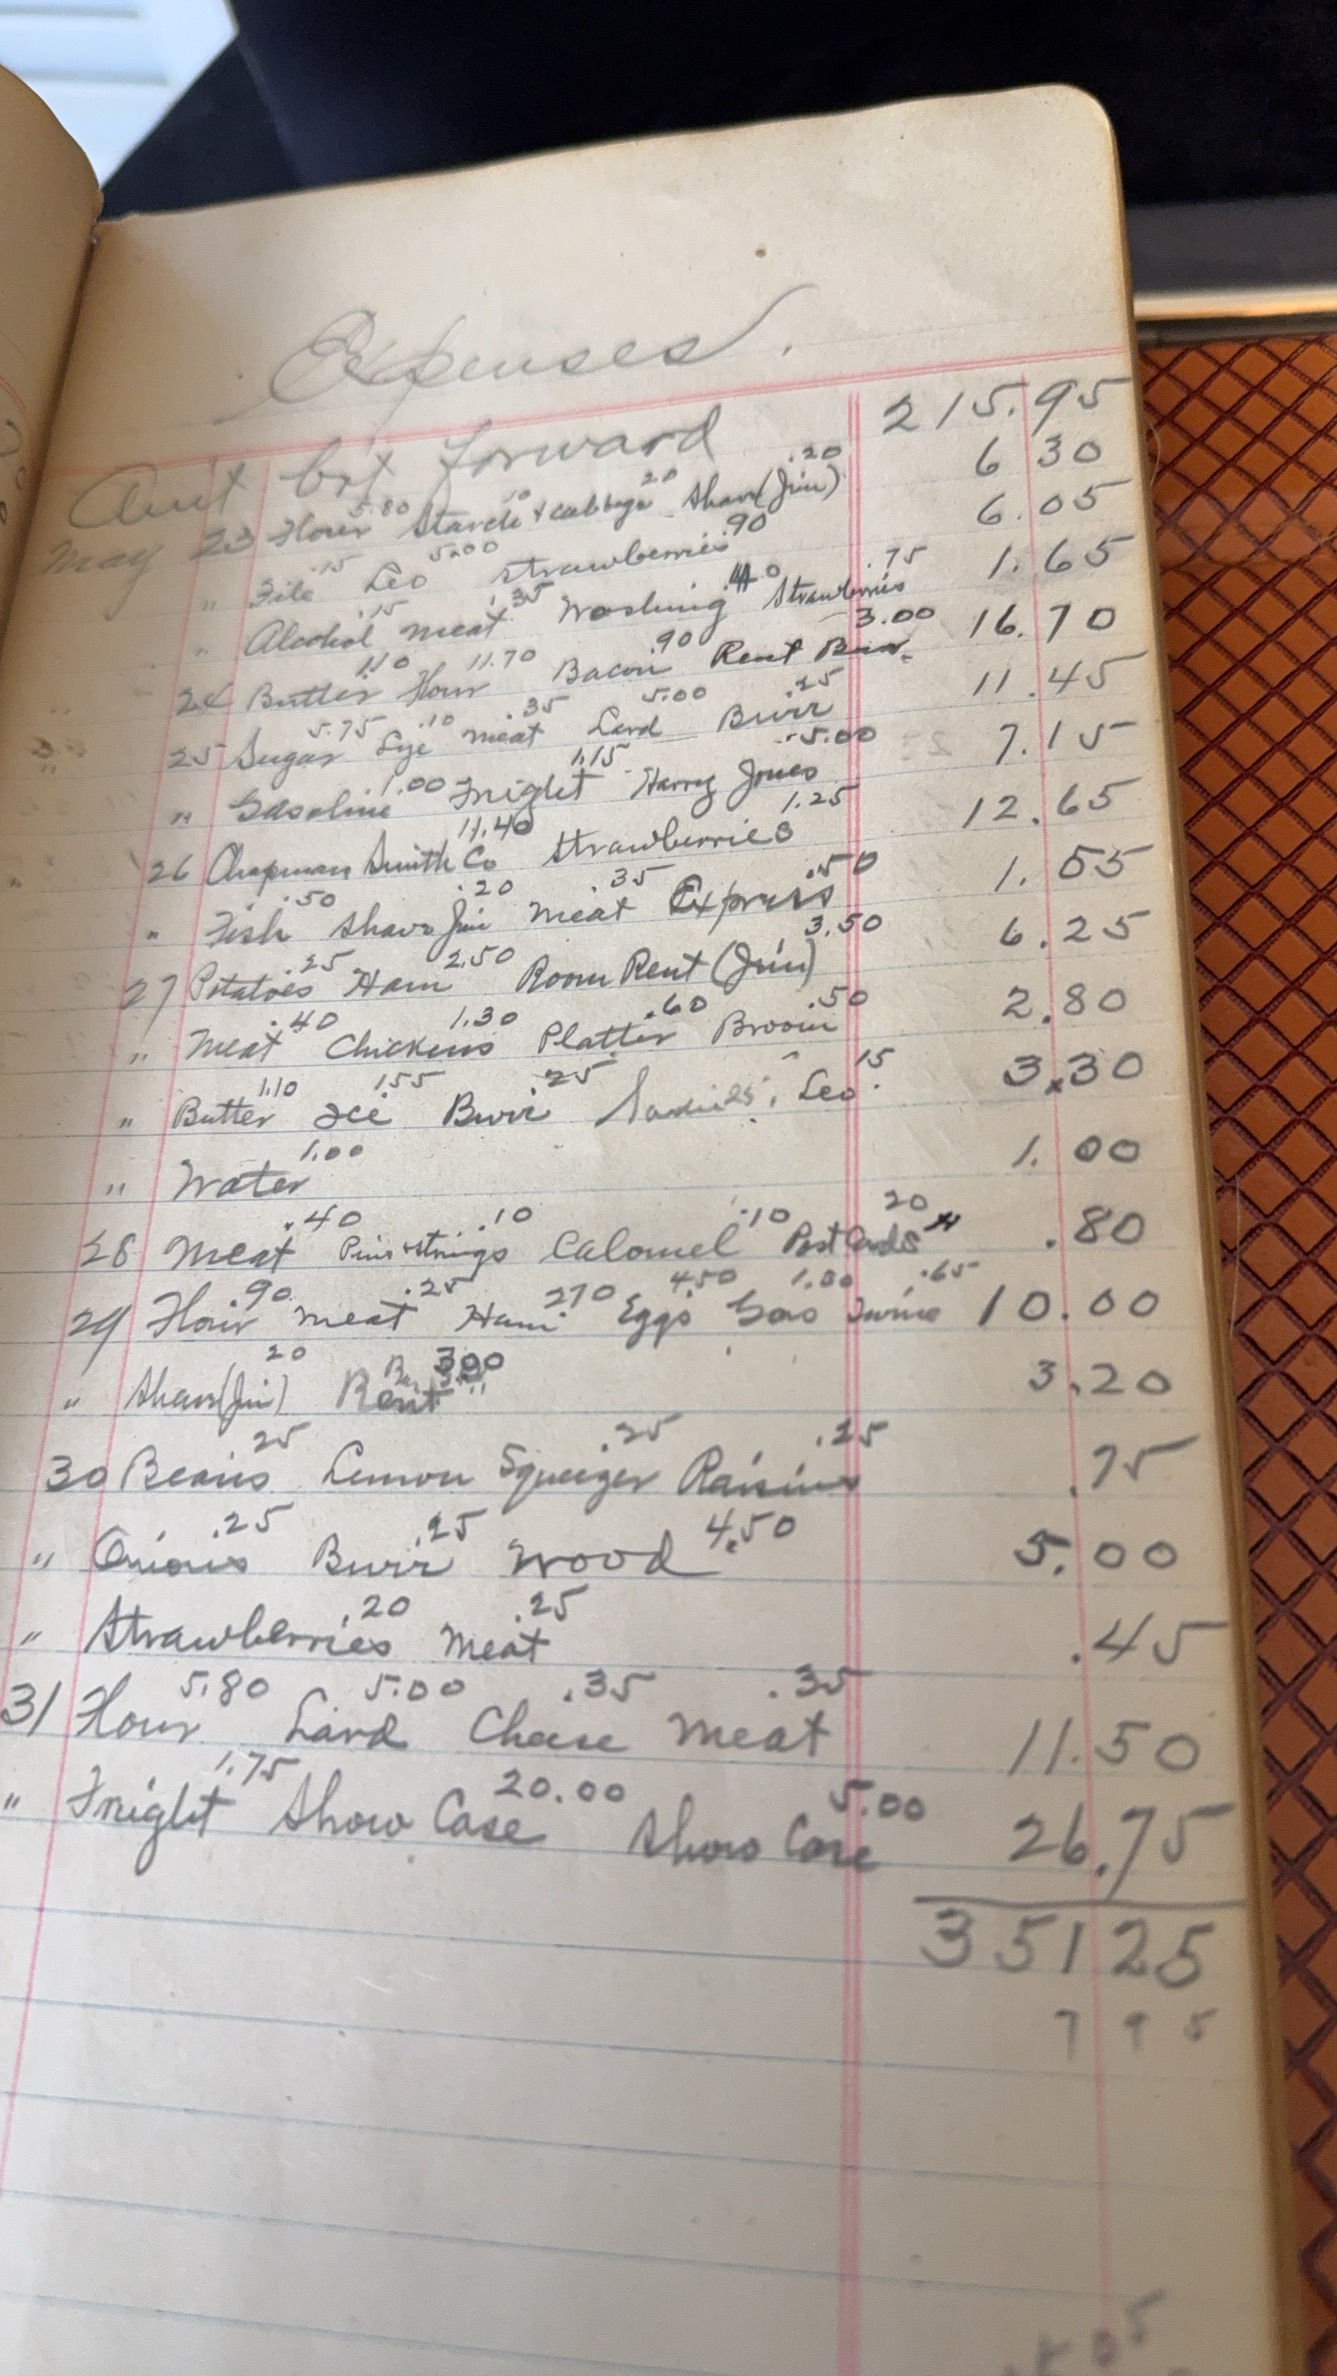 Expenses.
Amt bot forward 215.95
May 23 Flour 5.80 Starch & cabbage .10 .20 Shave (Jim) .20 6 30
" File .15 Leo 5.00 Strawberries .90 6.05
" Alcohol .15 meat .35 Washing .40 Strawberries .75 1.65
24 Butter 1.10 Flour 11.70 Bacon .90 Rent Bur. 3.00 16.70
25 Sugar 5.75 Lye .10 meat .35 Lard 5.00 Burr .25 11.45
" Gasoline 1.00 Frieght 1.15 Harry Jones 5.00 7.15
26 Chapman Smith Co 11.40 Strawberries 1.25 12.65
" Fish .50 Shave Jim .20 meat .35 Express .50 1.55
27 Potatoes .25 Ham 2.50 Room Rent (Jim) 3.50 6.25
" Meat .40 Chickens 1.30 Platter .60 Broom .50 2.80
" Butter 1.10 Ice 1.55 Burr .25 25 Leo .15 3.30
" Water 1.00 1.00
28 Meat .40 Pins & strings .10 Calomel .10 Post Cards 20 .80
29 Flour .90 meat .25 Ham 2.70 Eggs 4.50 Gas 1.00 Twine .65 10.00
" Shave (Jim) 20 Rent 3.00 3.20
30 Beans .25 Lemon Squeezer .25 Raisins .25 .75
" Onions .25 Burr .25 Wood 4.50 5.00
" Strawberries .20 Meat .25 .45
31 Flour 5.80 Lard 5.00 Cheese .35 Meat .35 11.50
" Frieght 1.75 Show Case 20.00 Show Case 5.00 26.75
351 25
7 95